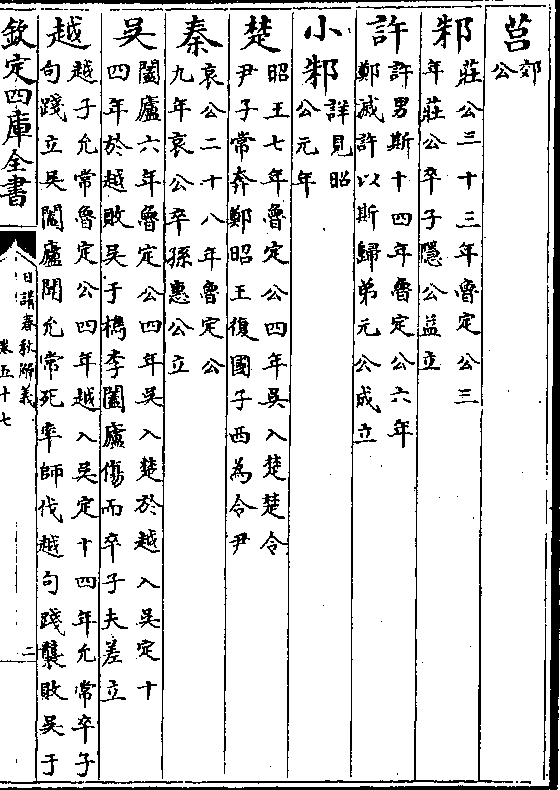 莒
郊
公
邾
莊公三十三年魯定公三
年莊公卒子隱公益立
許
許男斯十四年魯定公六年
鄭滅許以斯歸弟元公成立
小邾
詳見昭
公元年
楚
昭王七年魯定公四年吳入楚楚令
尹子常奔鄭昭王復國子西為令尹
秦
哀公二十八年魯定公
九年哀公卒孫惠公立
吳
闔廬六年魯定公四年吳入楚於越入吳定十
四年於越敗吳于檇李闔廬傷而卒子夫差立
越
越子允常魯定公四年越入吳定十四年允常卒子
句踐立吳闔廬聞允常死率師伐越句踐襲敗吳于
欽定四庫全書
日講春秋解義
卷五十七
二